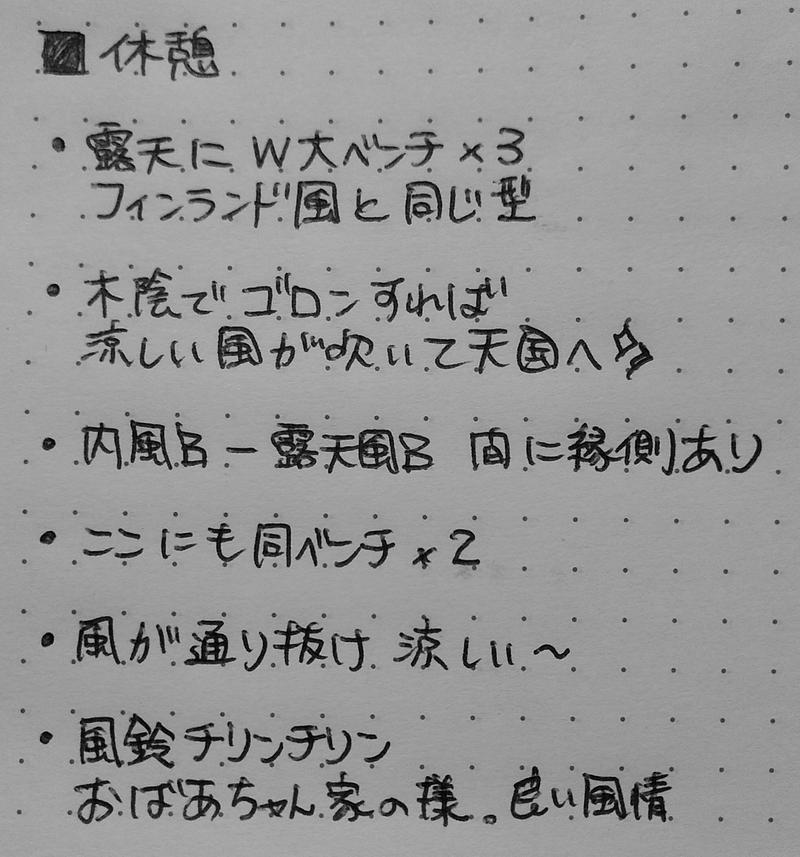 ■ 休憩
• 露天に W大ベンチ×3
フィンランド風と同じ型
• 木陰でゴロンすれば
涼しい風が吹いて天国へ
• 内風B ー 露天風B 間に縁側あり
• ここにも同ベンチ×2
• 風が通り抜け 涼しい〜
• 風鈴チリンチリン
おばあちゃん家の様。良い風情